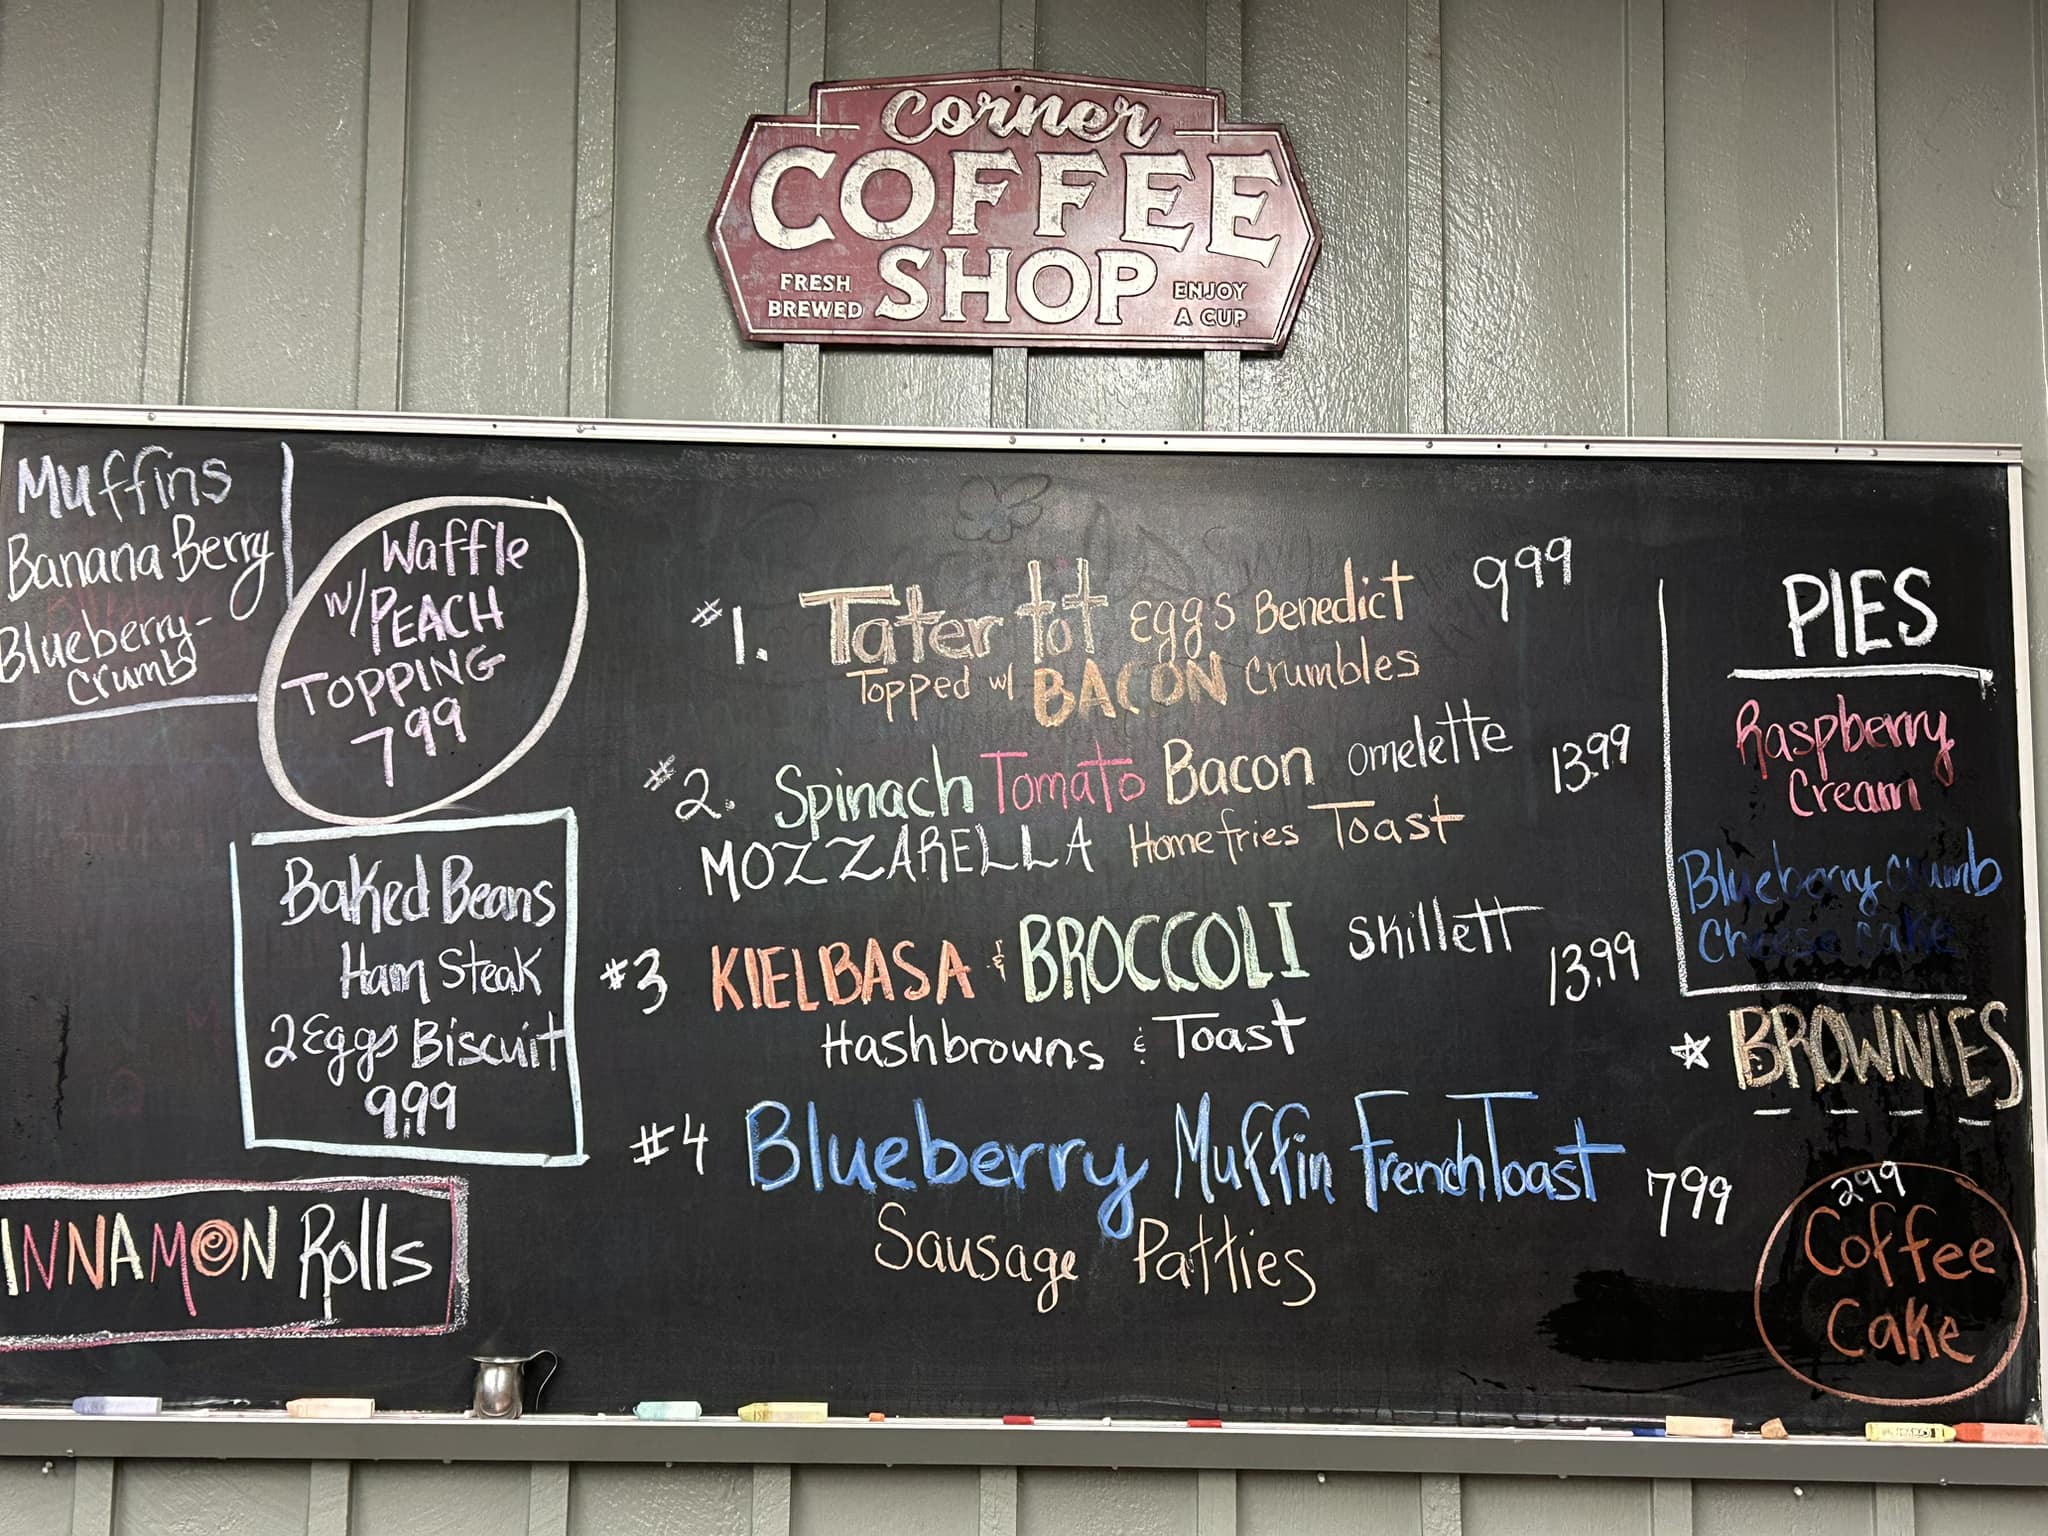 Corner
COFFEE
SHOP
FRESH
BREWED
ENJOY
A CUP
Muffins
Banana Berry
Blueberry-
Crumb
Waffle
w/PEACH
TOPPING
799
Baked Beans
Ham Steak
2 Eggs Biscuit
9.99
INNAMON Rolls
#1. Tater tot Eggs Benedict 999
Topped w/ BACON Crumbles
#2. Spinach Tomato Bacon omelette 13.99
MOZZARELLA Homefries Toast
#3 KIELBASA & BROCCOLI Skillett 13.99
Hashbrowns & Toast
#4 Blueberry Muffin French Toast 799
Sausage Patties
PIES
Raspberry
Cream
Blueberry Crumb
Cheese cake
BROWNIES
299
Coffee
Cake